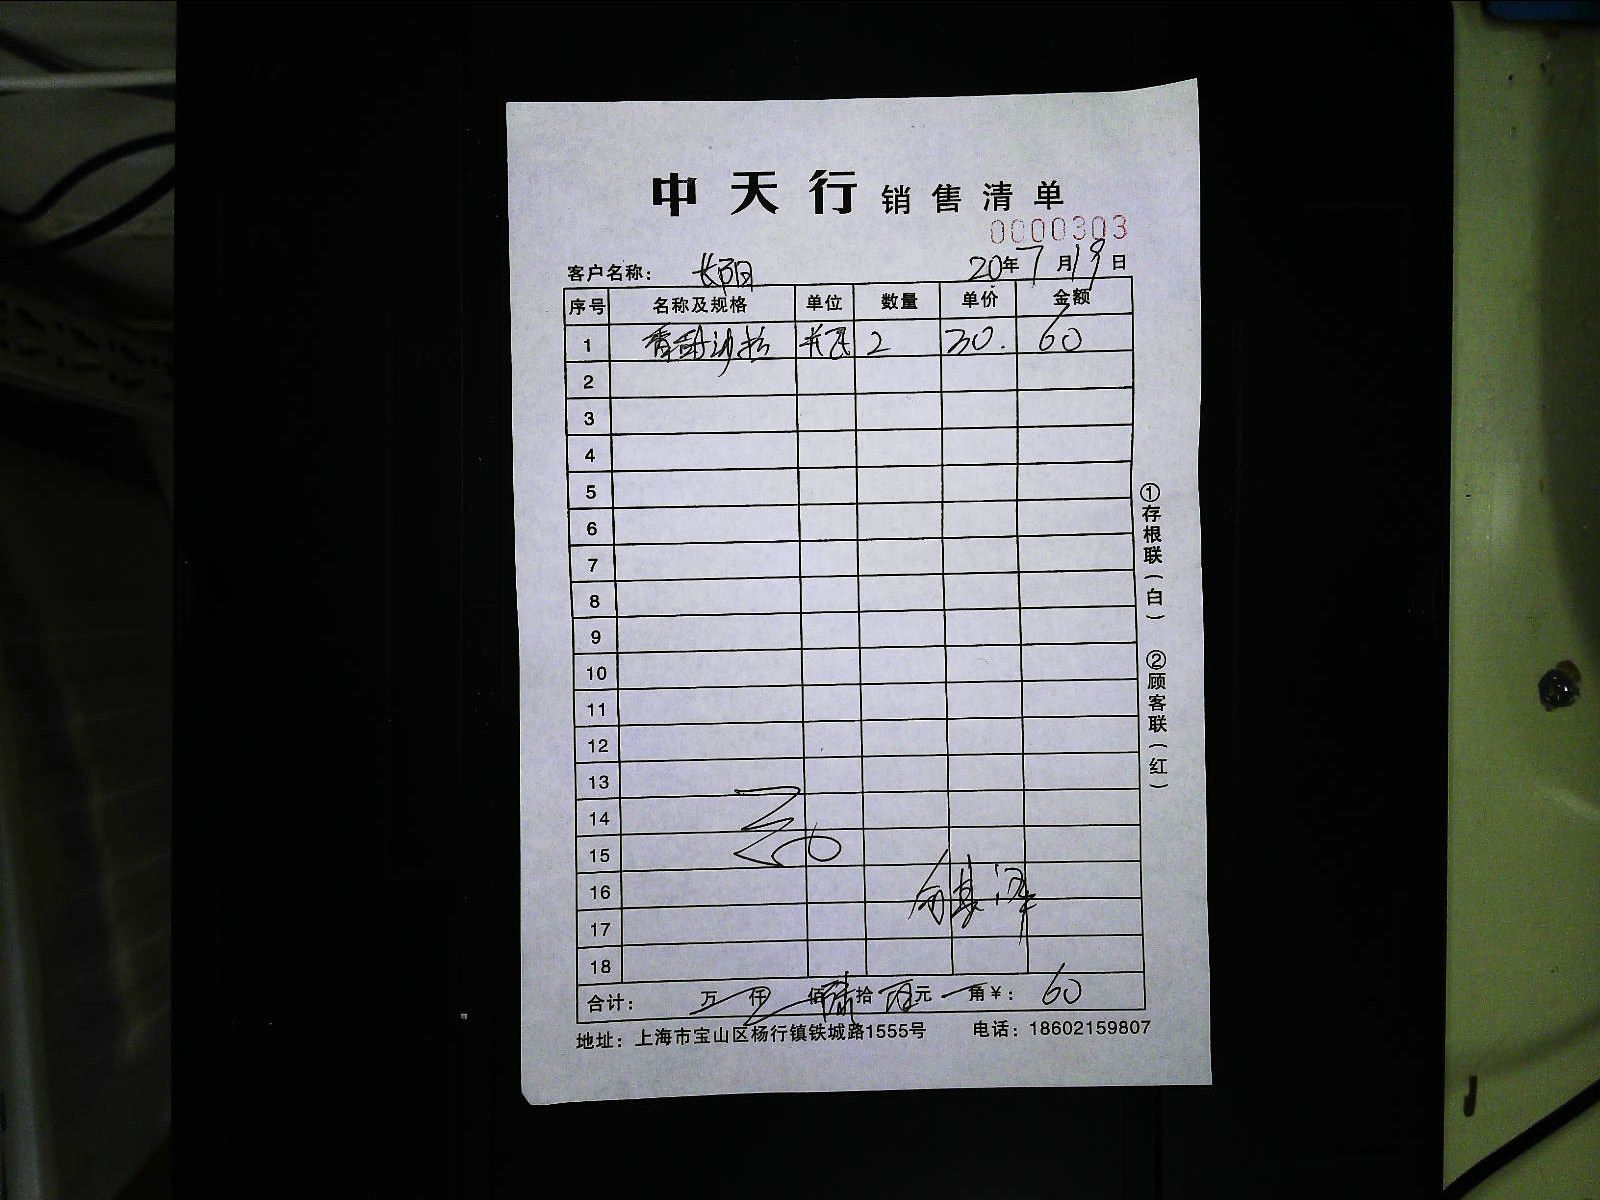 中天行销售清单
0000303
客户名称： 长阳 20年7月19日
序号 名称及规格 单位 数量 单价 金额
1 香甜沙拉 2 30. 60
2
3
4
5
6
7
8
9
10
11
12
13
14
15
16
17
18
合计： 万 仟 佰 陆拾 元 角￥： 60
地址：上海市宝山区杨行镇铁城路1555号 电话：18602159807
①存根联（白） ②顾客联（红）